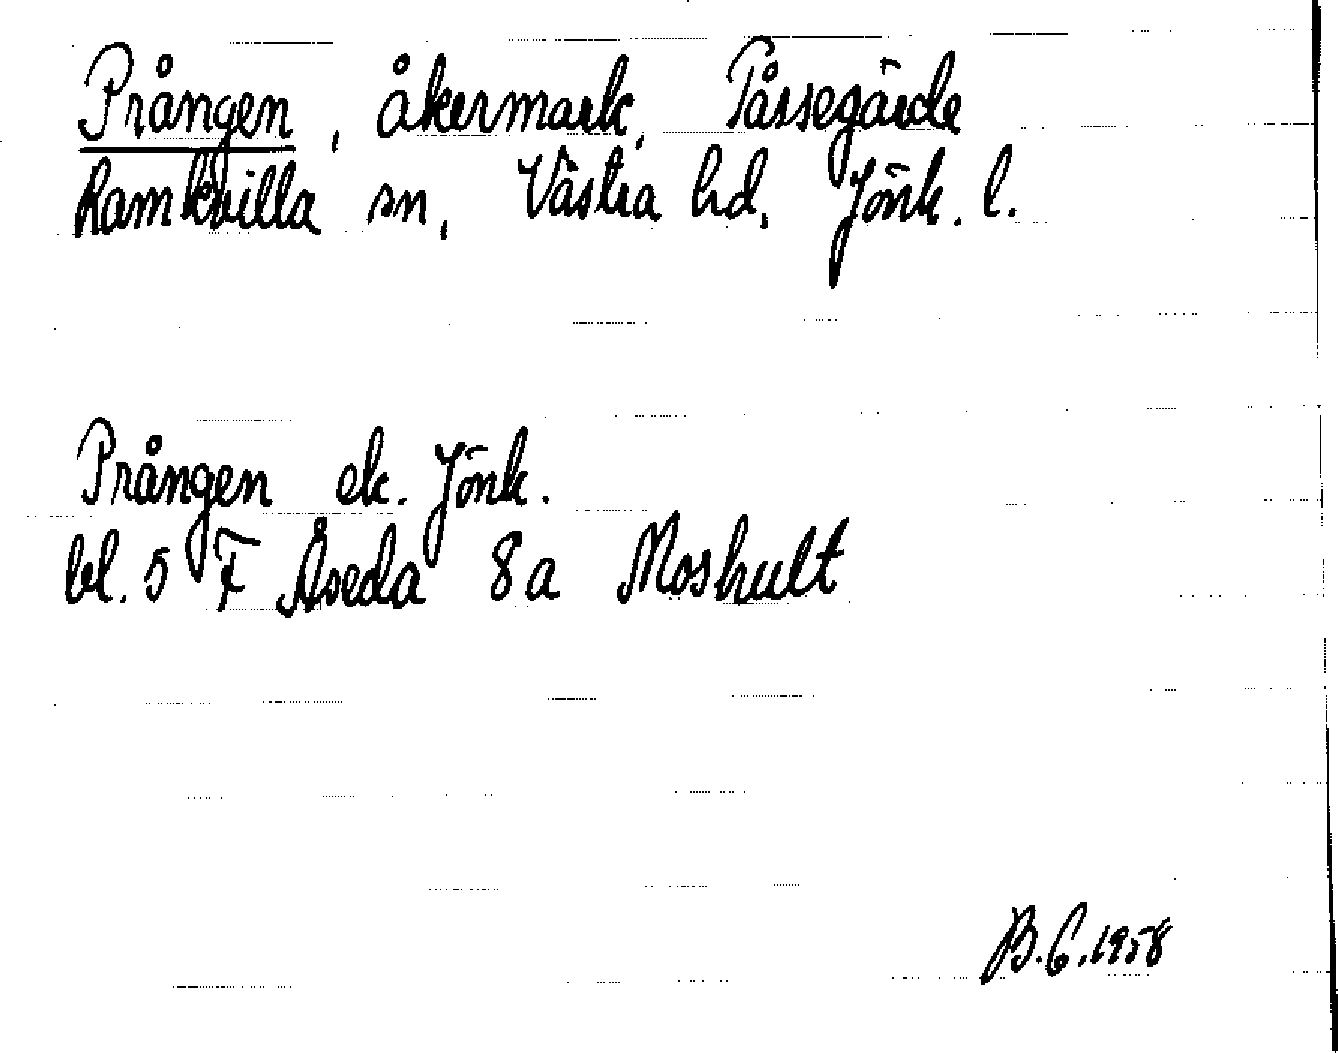 Prången, åkermark, Påssegärde
Ramkvilla sn, Västra hd, Jönk. l.
Prången ek. Jönk.
bl. 5 F Åseda 8a Moshult
B.G.1958